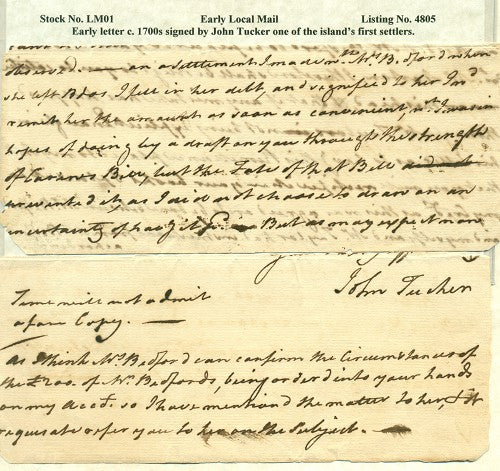 Stock No. LM01 Early Local Mail Listing No. 4805
Early letter c. 1700s signed by John Tucker one of the island's first settlers.
observed. — on a settlement I made wth Mrs Bedford when
she left Bdas I fell in her debt, and signified to her I wd
remit her the amount as soon as convenient, & I was in
hopes of doing by a draft on you through the strength
of Bill, but the Fate of that Bill
prevented it, as I did not choose to draw on an
uncertainty of But as may expect
John Tucker
Time will not admit
a fair Copy. —
as I think Mrs Bedford can confirm the Circumstances of
the £200. of Mr Bedfords, being orderd into your hands
on my Acct. so I have mention'd the matter to her, &
requisate refer you to her on the Subject. —